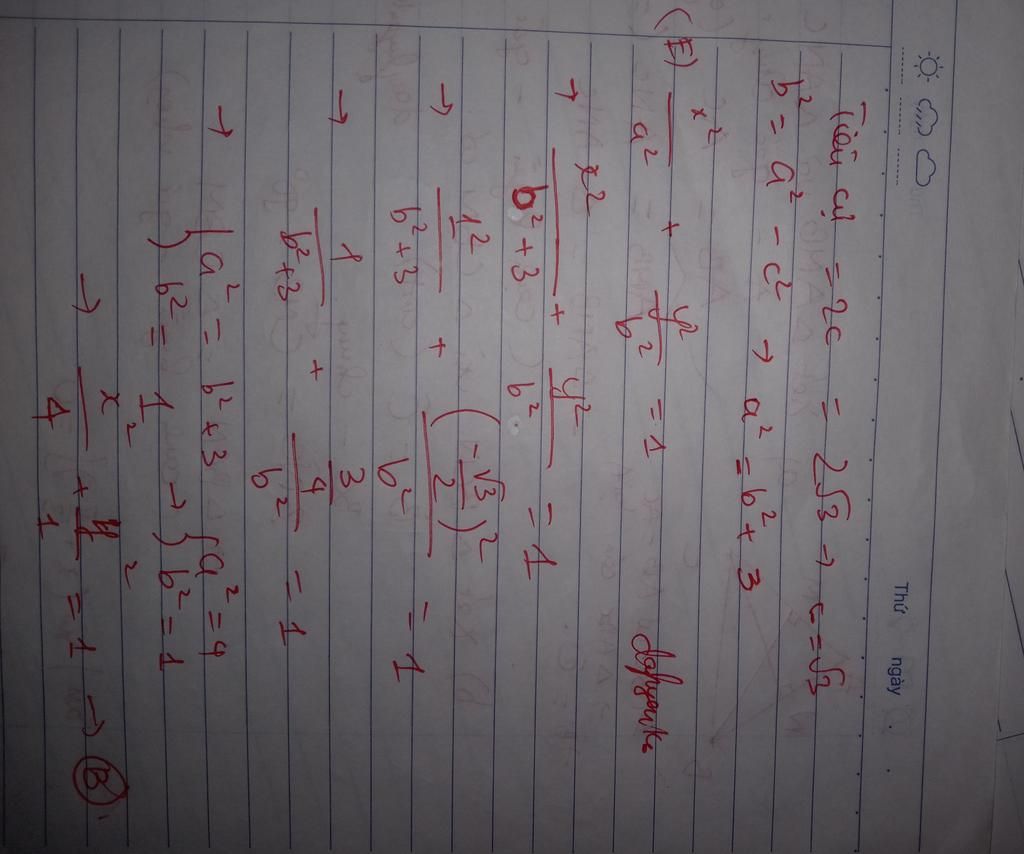 Thứ ngày
Tiêu cự = 2c = 2√3 → c = √3
b² = a² - c² → a² = b² + 3
(E) x²/a² + y²/b² = 1
→ x²/b² + 3 + y²/b² = 1
→ 1²/b² + 3 + (-√3/2)²/b² = 1
→ 1/b² + 3 + 3/4/b² = 1
→ { a² = b² + 3 → { a² = 4
{ b² = 1 → { b² = 1
→ x²/4 + y²/1 = 1 → B